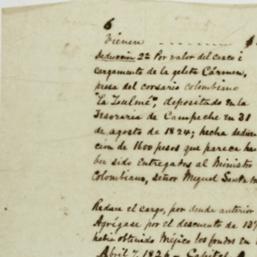 6
Vienen ........ $
Deduccion 2ª Por valor del casco i
cargamento de la goleta Cármen,
presa del corsario colombiano
"La Zulme", depositado en la
Tesoraria de Campeche en 31
de agosto de 1824; hecha deduc
cion de 1600 pesos que parece ha
ber sido entregados al Ministro
Colombiano, señor Miguel Santa
Reduce el cargo, por donde anterior
Agrégase por el descuento de 15
obtenido Méjico los fondos en
Abril 7, 1826 - Capital